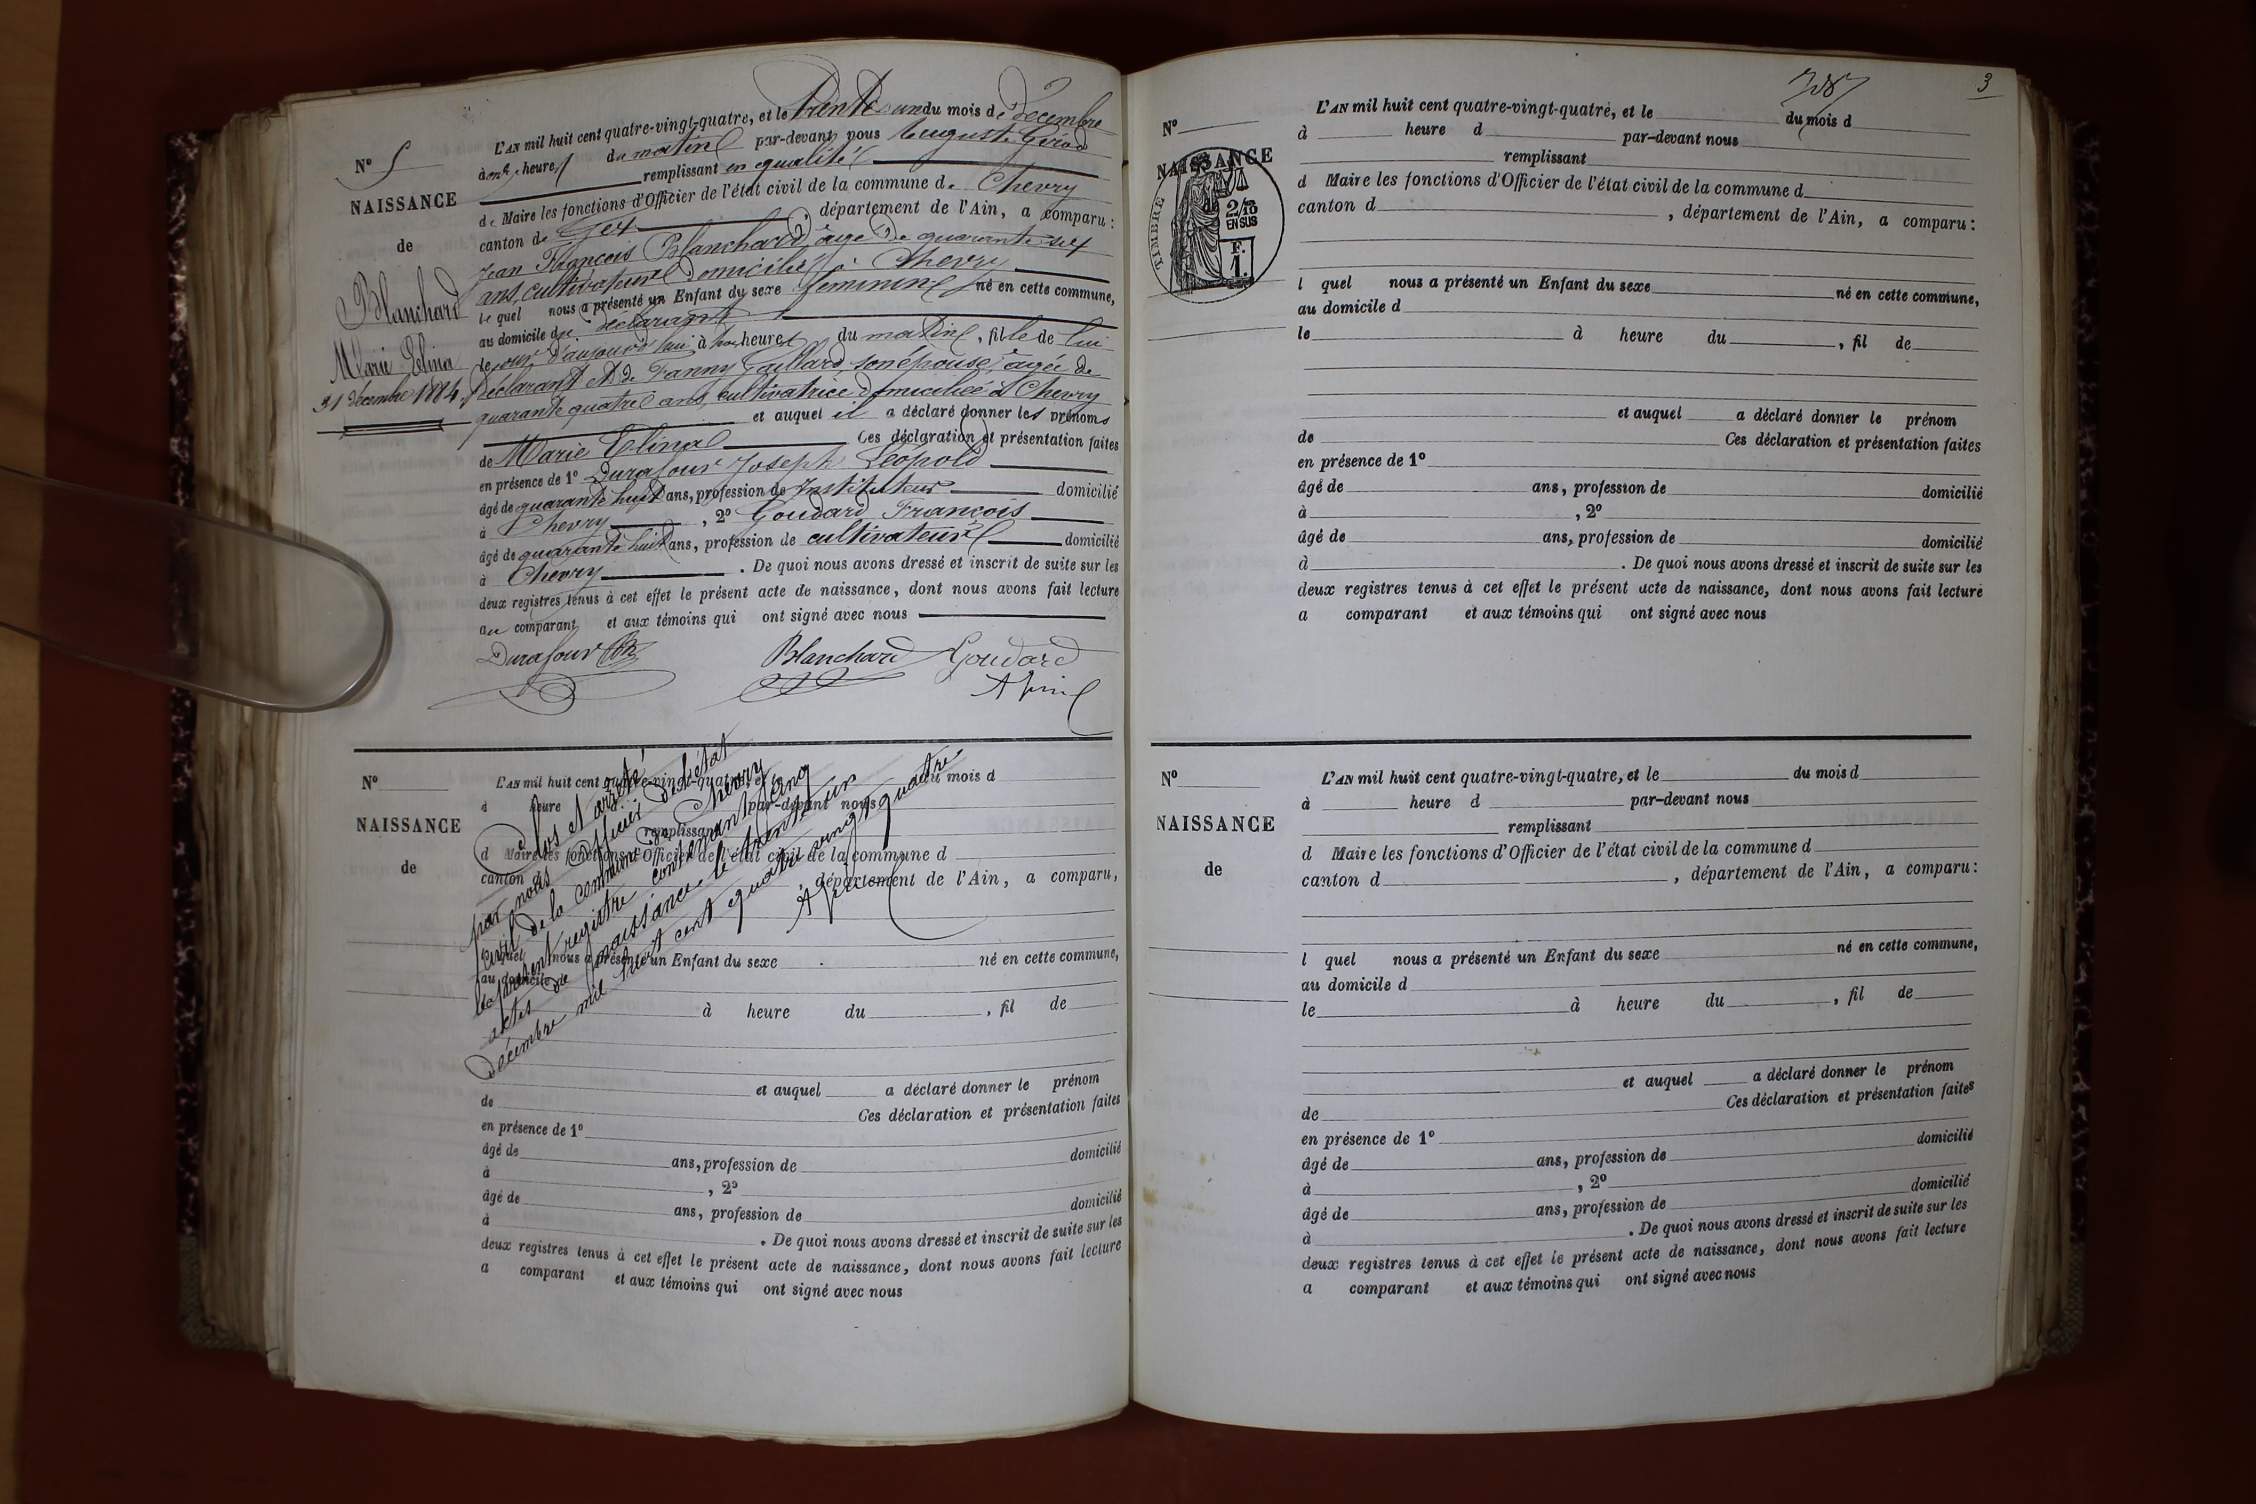 N° 5
NAISSANCE
de
Blanchard
Marie Célina
31 décembre 1884
L'AN mil huit cent quatre-vingt-quatre, et le trente un du mois de décembre
à onze heures du matin par-devant nous Auguste Girod
remplissant en qualité
de Maire les fonctions d'Officier de l'état civil de la commune de Chevry
canton de Gex, département de l'Ain, a comparu:
Jean François Blanchard, âgé de quarante six
ans, cultivateur domicilié à Chevry
le quel nous a présenté un Enfant du sexe féminin né en cette commune,
au domicile du déclarant
le jour d'aujourd'hui à heures du matin, fille de lui
déclarant et de Fanny Gaillard, son épouse, âgée de
quarante quatre ans, cultivatrice domiciliée à Chevry
et auquel il a déclaré donner les prénoms
de Marie Célina Ces déclaration et présentation faites
en présence de 1° Durafour Joseph Léopold
âgé de quarante huit ans, profession de Instituteur domicilié
à Chevry, 2° Goudard François
âgé de quarante huit ans, profession de cultivateur domicilié
à Chevry. De quoi nous avons dressé et inscrit de suite sur les
deux registres tenus à cet effet le présent acte de naissance, dont nous avons fait lecture
au comparant et aux témoins qui ont signé avec nous
Durafour Blanchard Goudard
N°
NAISSANCE
de
L'AN mil huit cent quatre-vingt-quatre, et le du mois d
à heure d par-devant nous
remplissant
d Maire les fonctions d'Officier de l'état civil de la commune d
canton d, département de l'Ain, a comparu,
l quel nous a présenté un Enfant du sexe né en cette commune,
au domicile d
le à heure du, fil de
et auquel a déclaré donner le prénom
de Ces déclaration et présentation faites
en présence de 1°
âgé de ans, profession de domicilié
à, 2°
âgé de ans, profession de domicilié
à. De quoi nous avons dressé et inscrit de suite sur les
deux registres tenus à cet effet le présent acte de naissance, dont nous avons fait lecture
a comparant et aux témoins qui ont signé avec nous
Clos et arrêté
par nous Officier de l'état
civil de la commune de Chevry
le présent registre contenant cinq
actes de naissance le trente un
décembre mil huit cent quatre vingt quatre
3
N°
NAISSANCE
TIMBRE
2/10
EN SUS
F.
1.
L'AN mil huit cent quatre-vingt-quatre, et le du mois d
à heure d par-devant nous
remplissant
d Maire les fonctions d'Officier de l'état civil de la commune d
canton d, département de l'Ain, a comparu:
l quel nous a présenté un Enfant du sexe né en cette commune,
au domicile d
le à heure du, fil de
et auquel a déclaré donner le prénom
de Ces déclaration et présentation faites
en présence de 1°
âgé de ans, profession de domicilié
à, 2°
âgé de ans, profession de domicilié
à. De quoi nous avons dressé et inscrit de suite sur les
deux registres tenus à cet effet le présent acte de naissance, dont nous avons fait lecture
a comparant et aux témoins qui ont signé avec nous
N°
NAISSANCE
de
L'AN mil huit cent quatre-vingt-quatre, et le du mois d
à heure d par-devant nous
remplissant
d Maire les fonctions d'Officier de l'état civil de la commune d
canton d, département de l'Ain, a comparu:
l quel nous a présenté un Enfant du sexe né en cette commune,
au domicile d
le à heure du, fil de
et auquel a déclaré donner le prénom
de Ces déclaration et présentation faites
en présence de 1°
âgé de ans, profession de domicilié
à, 2°
âgé de ans, profession de domicilié
à. De quoi nous avons dressé et inscrit de suite sur les
deux registres tenus à cet effet le présent acte de naissance, dont nous avons fait lecture
a comparant et aux témoins qui ont signé avec nous